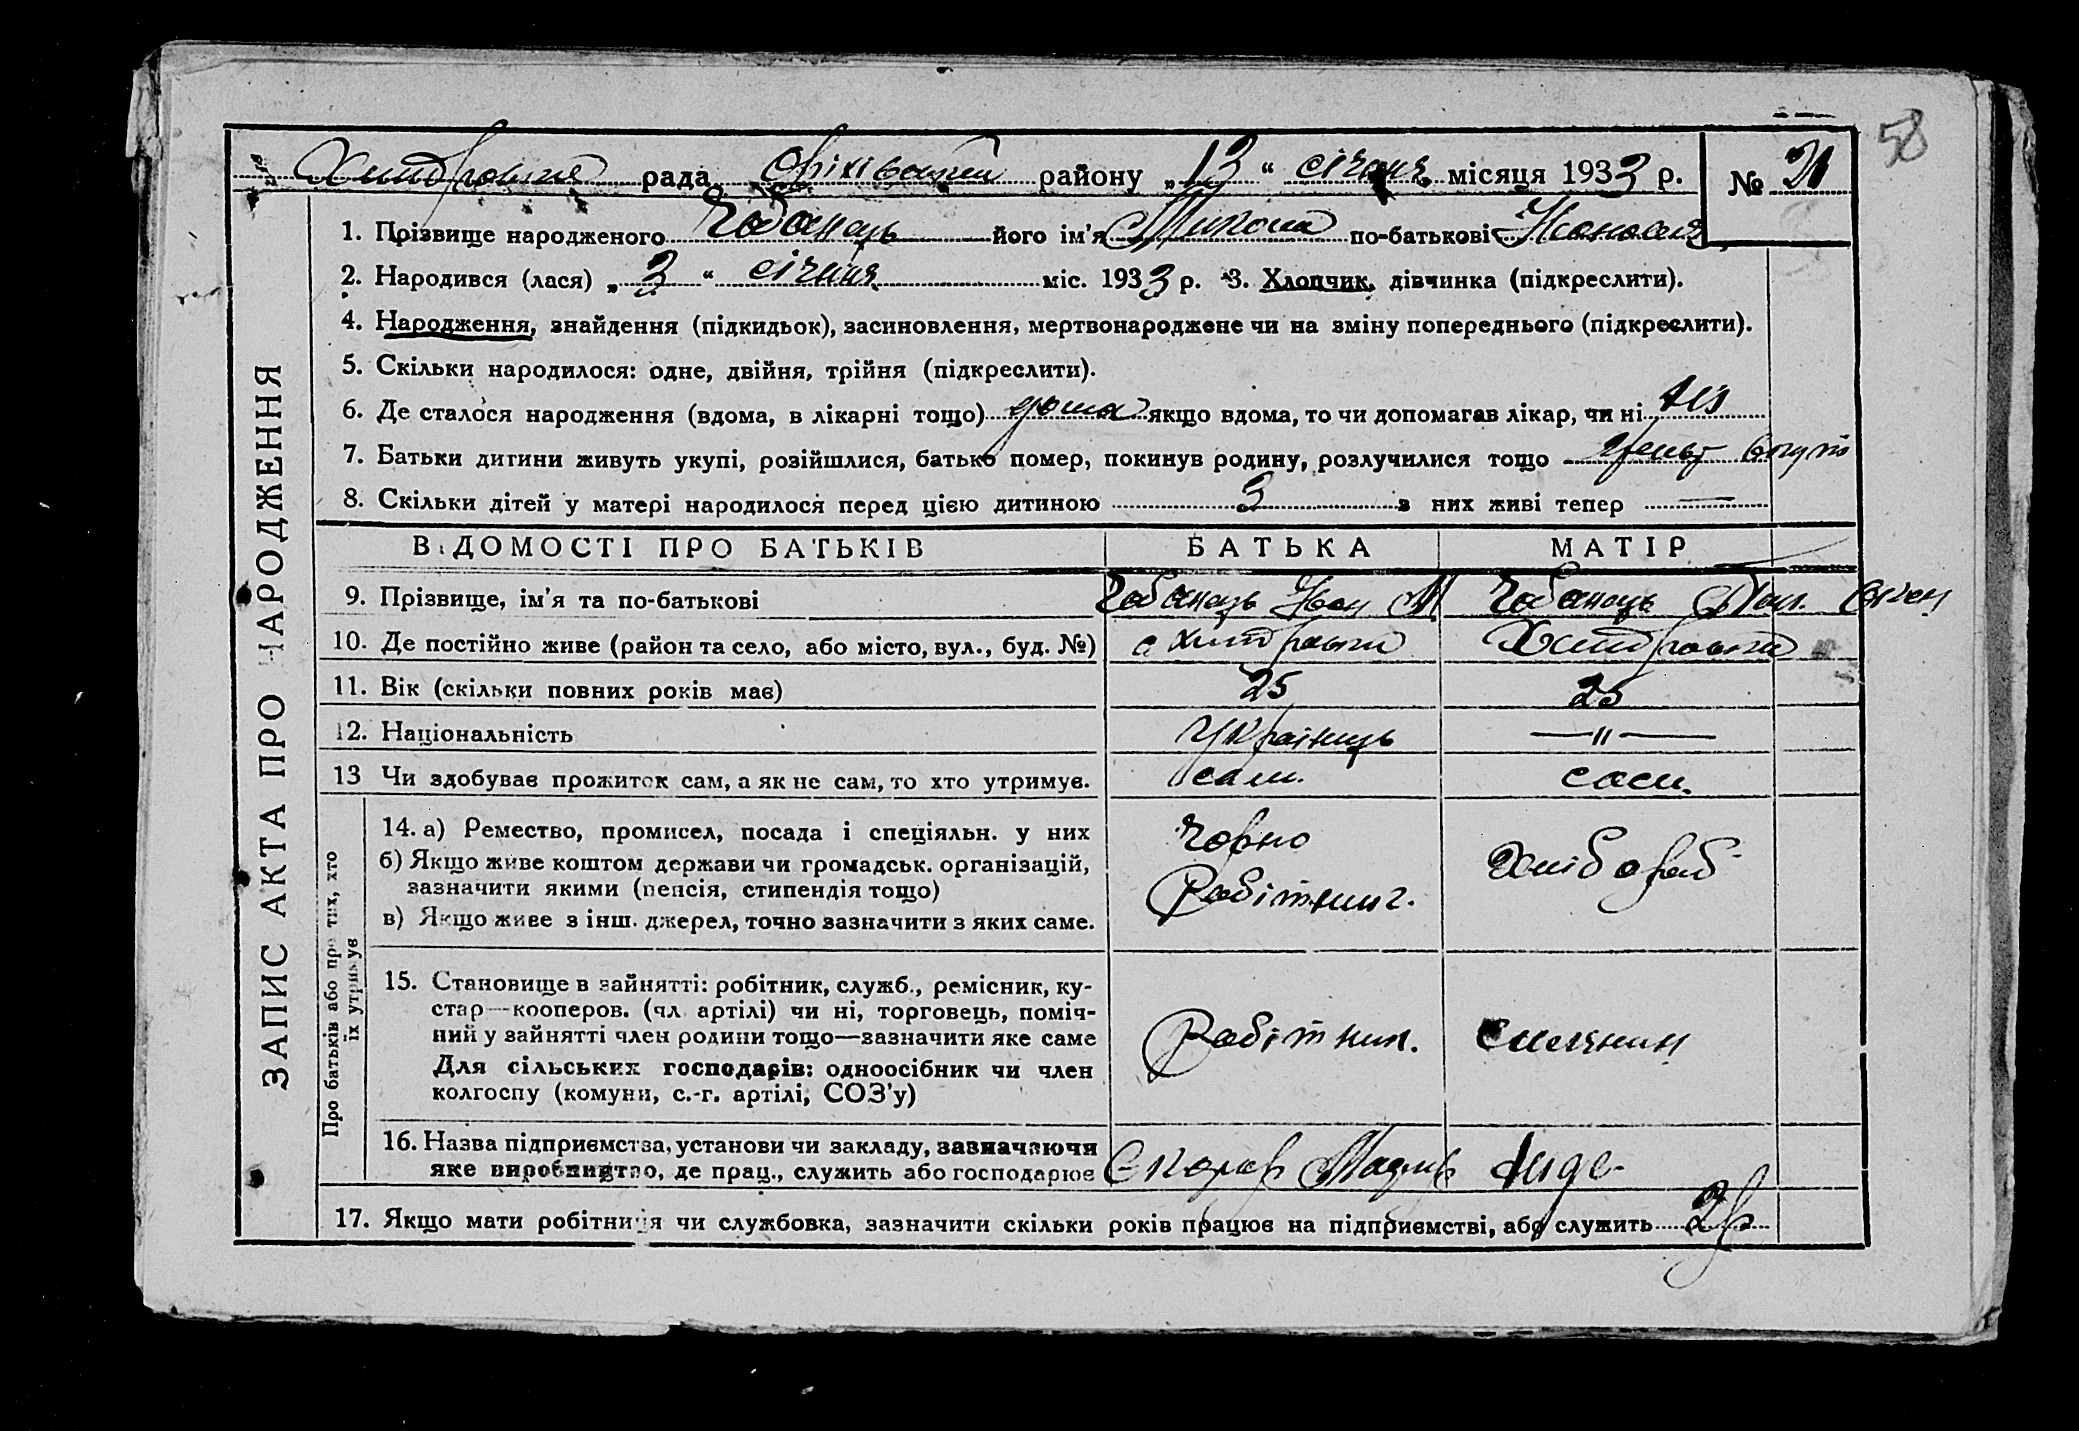 58
рада району „13“ січня місяця 1933 р. № 21
1. Прізвище народженого Чабанець його ім'я Микола по-батькові
2. Народився (лася) „3“ січня міс. 1933 р. 3. Хлопчик, дівчинка (підкреслити).
4. Народження, знайдення (підкидьок), засиновлення, мертвонароджене чи на зміну попереднього (підкреслити).
5. Скільки народилося: одне, двійня, трійня (підкреслити).
6. Де сталося народження (вдома, в лікарні тощо) дома якщо вдома, то чи допомагав лікар, чи ні ні
7. Батьки дитини живуть укупі, розійшлися, батько помер, покинув родину, розлучилися тощо
8. Скільки дітей у матері народилося перед цією дитиною 3 з них живі тепер —
ВІДОМОСТІ ПРО БАТЬКІВ БАТЬКА МАТІР
9. Прізвище, ім'я та по-батькові Чабанець Іван М Чабанець
10. Де постійно живе (район та село, або місто, вул., буд. №)
11. Вік (скільки повних років має) 25 25
12. Національність Українець —"—
13 Чи здобуває прожиток сам, а як не сам, то хто утримує. сам. сам.
14. а) Ремество, промисел, посада і спеціяльн. у них
б) Якщо живе коштом держави чи громадськ. організацій,
зазначити якими (пенсія, стипендія тощо)
в) Якщо живе з інш. джерел, точно зазначити з яких саме.
Чорно
Робітник.
Хлібороб
15. Становище в зайнятті: робітник, служб., ремісник, ку-
стар—кооперов. (чл. артілі) чи ні, торговець, поміч-
ний у зайнятті член родини тощо—зазначити яке саме
Для сільських господарів: одноосібник чи член
колгоспу (комуни, с.-г. артілі, СОЗ'у)
Робітник.
16. Назва підприємства, установи чи закладу, зазначаючи
яке виробництво, де прац., служить або господарює
17. Якщо мати робітниця чи службовка, зазначити скільки років працює на підприємстві, або служить
ЗАПИС АКТА ПРО НАРОДЖЕННЯ
Про батьків або про тих, хто
їх утримує